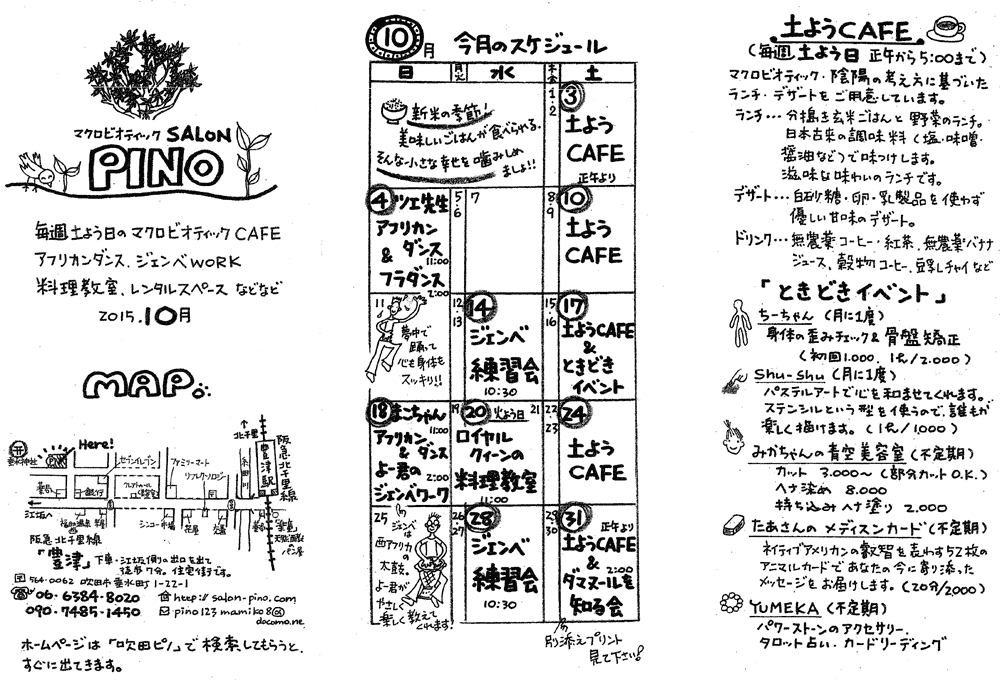 マクロビオティック SALON
PINO
毎週土よう日のマクロビオティックCAFE
アフリカンダンス、ジェンベWORK
料理教室、レンタルスペース などなど
2015.10月
MAP
Here!
PINO
垂水神社
セブンイレブン
ファミリーマート
リフレクソロジー
北千里
豊津駅
阪急北千里線
銀行
シンコー市場
花屋
交番
江坂へ
阪急北千里線
「豊津」下車・江坂側の出口を出て
徒歩7分。住宅街です。
〒564-0062 吹田市垂水町1-22-1
☎06-6384-8020
http://salon-pino.com
090-7485-1450
pino123mamiko8@
docomo.ne
ホームページは「吹田ピノ」で検索してもらうと、
すぐに出てきます。
10月 今月のスケジュール
日 月火 水 木金 土
新米の季節!
美味しいごはんが食べられる、
そんな小さな幸せを噛みしめ
ましょ!!
1・2
3
土よう
CAFE
正午より
4 ツェ先生
アフリカン
& ダンス
11:00
フラダンス
2:00
5・6
7
8・9
10
土よう
CAFE
11
夢中で
踊って
心も身体も
スッキリ!!
12・13
14
ジェンベ
練習会
10:30
15・16
17
土ようCAFE
&
ときどき
イベント
18 まこちゃん
11:00
アフリカン
& ダンス
よー君の
2:00
ジェンベワーク
19
20 火よう日
ロイヤル
クイーンの
料理教室
11:00
21
22・23
24
土よう
CAFE
25
ジェンベは
西アフリカの
太鼓。
よー君が
やさしく
楽しく教えて
くれます!
26・27
28
ジェンベ
練習会
10:30
29・30
31 正午より
土ようCAFE
& 2:00
ダマヌールを
知る会
別添えプリント
見て下さい!
土ようCAFE
(毎週土よう日 正午から5:00まで)
マクロビオティック・陰陽の考え方に基づいた
ランチ・デザートをご用意しています。
ランチ・・・分搗き玄米ごはんと野菜のランチ。
日本古来の調味料(塩・味噌・
醤油など)で味つけします。
滋味な味わいのランチです。
デザート・・・白砂糖・卵・乳製品を使わず
優しい甘味のデザート。
ドリンク・・・無農薬コーヒー・紅茶、無農薬バナナ
ジュース、穀物コーヒー、豆乳チャイなど
「ときどきイベント」
ちーちゃん (月に1度)
身体の歪みチェック&骨盤矯正
(初回1,000. 1流/2,000)
Shu-Shu (月に1度)
パステルアートで心を和ませてくれます。
ステンシルという型を使うので、誰もが
楽しく描けます。(1流/1,000)
みかちゃんの青空美容室(不定期)
カット 3.000〜(部分カットO.K.)
ヘナ染め 8.000
持ち込みヘナ塗り 2.000
たあさんのメディスンカード(不定期)
ネイティブアメリカンの叡智を表わす52枚の
アニマルカードであなたの今に寄り添った
メッセージをお届けします。(20分/2000)
YUMEKA (不定期)
パワーストーンのアクセサリー、
タロット占い・カードリーディング